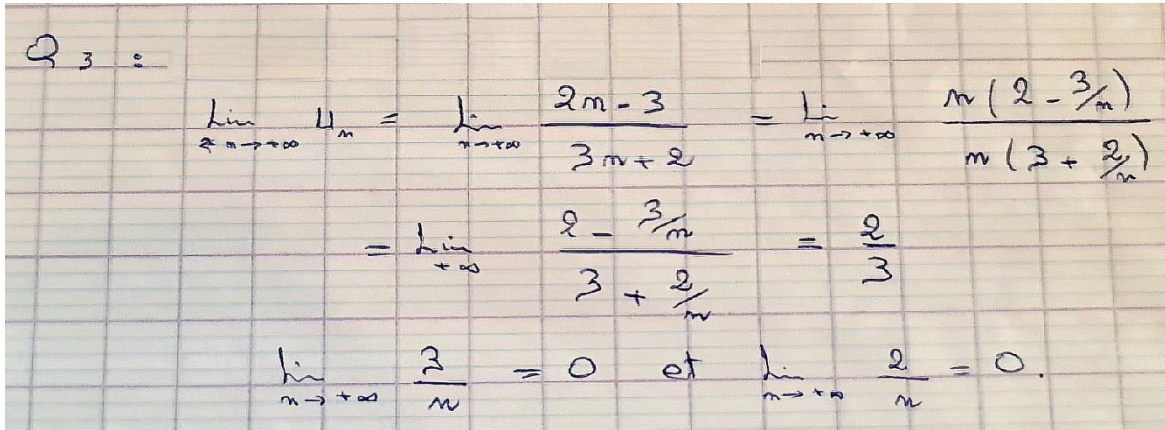 Q 3 :
Lim n→+∞ Un = Lim n→+∞ (2n - 3)/(3n + 2) = Li n→+∞ n(2 - 3/n)/n(3 + 2/n)
= Lim +∞ (2 - 3/n)/(3 + 2/n) = 2/3
Lim n→+∞ 3/n = 0 et Lim n→+∞ 2/n = 0.